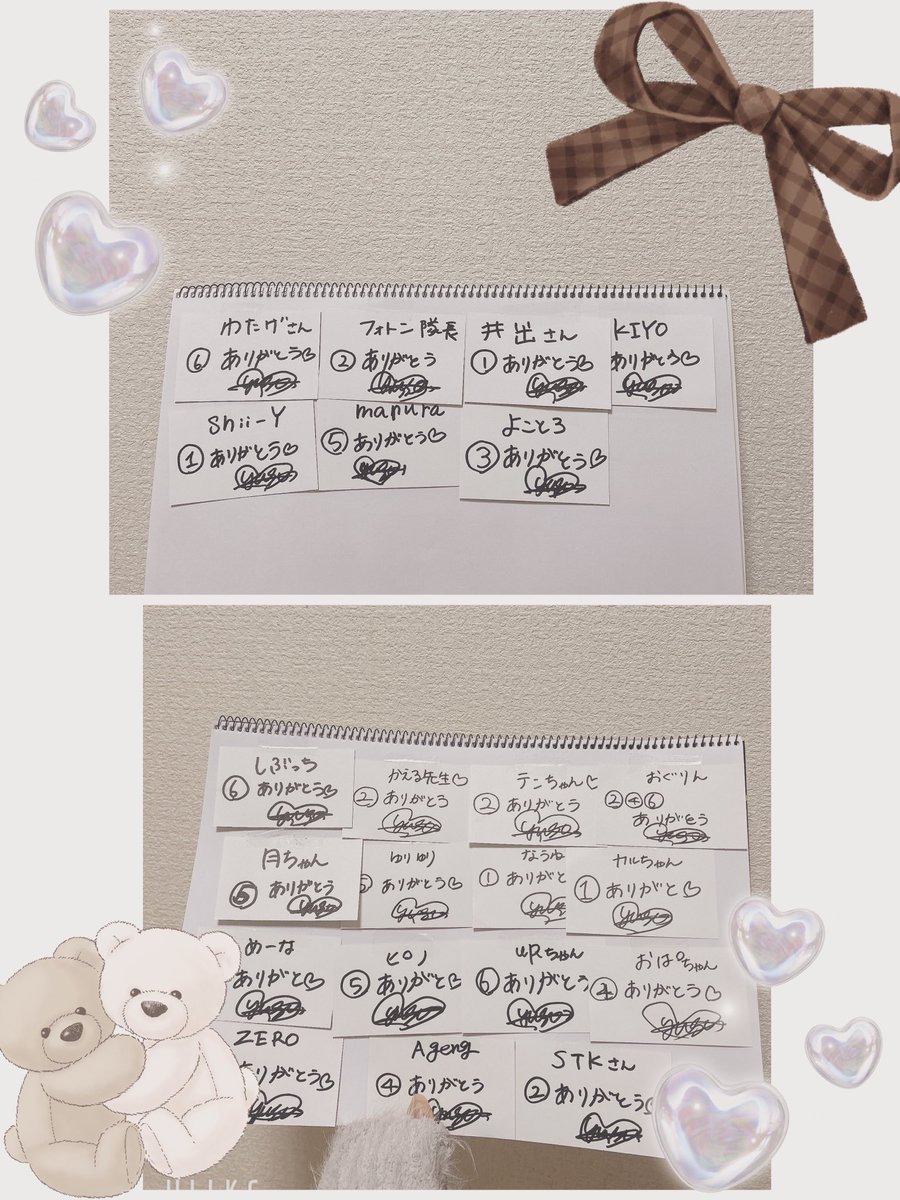 わたげさん
⑥ ありがとう♡
yuzu
フォトン隊長
② ありがとう
yuzu
井出さん
① ありがとう♡
yuzu
KIYO
ありがとう♡
yuzu
Shii-Y
① ありがとう♡
yuzu
manura
⑤ ありがとう♡
yuzu
よことろ
③ ありがとう♡
yuzu
しぶっち
⑥ ありがとう♡
yuzu
かえる先生♡
② ありがとう
yuzu
テンちゃん♡
② ありがとう
yuzu
おぐりん
②④⑥
ありがとう
yuzu
月ちゃん
⑤ ありがとう
yuzu
ゆりゆり
ありがとう♡
yuzu
なうね
① ありがと
カルちゃん
① ありがと♡
yuzu
めーな
ありがと♡
yuzu
ピノ
⑤ ありがと♡
yuzu
URちゃん
⑥ ありがとう
yuzu
おぱちゃん
④ ありがとう♡
yuzu
ZERO
りがとう♡
Ageng
④ ありがとう
yuzu
STKさん
② ありがとう
yuzu